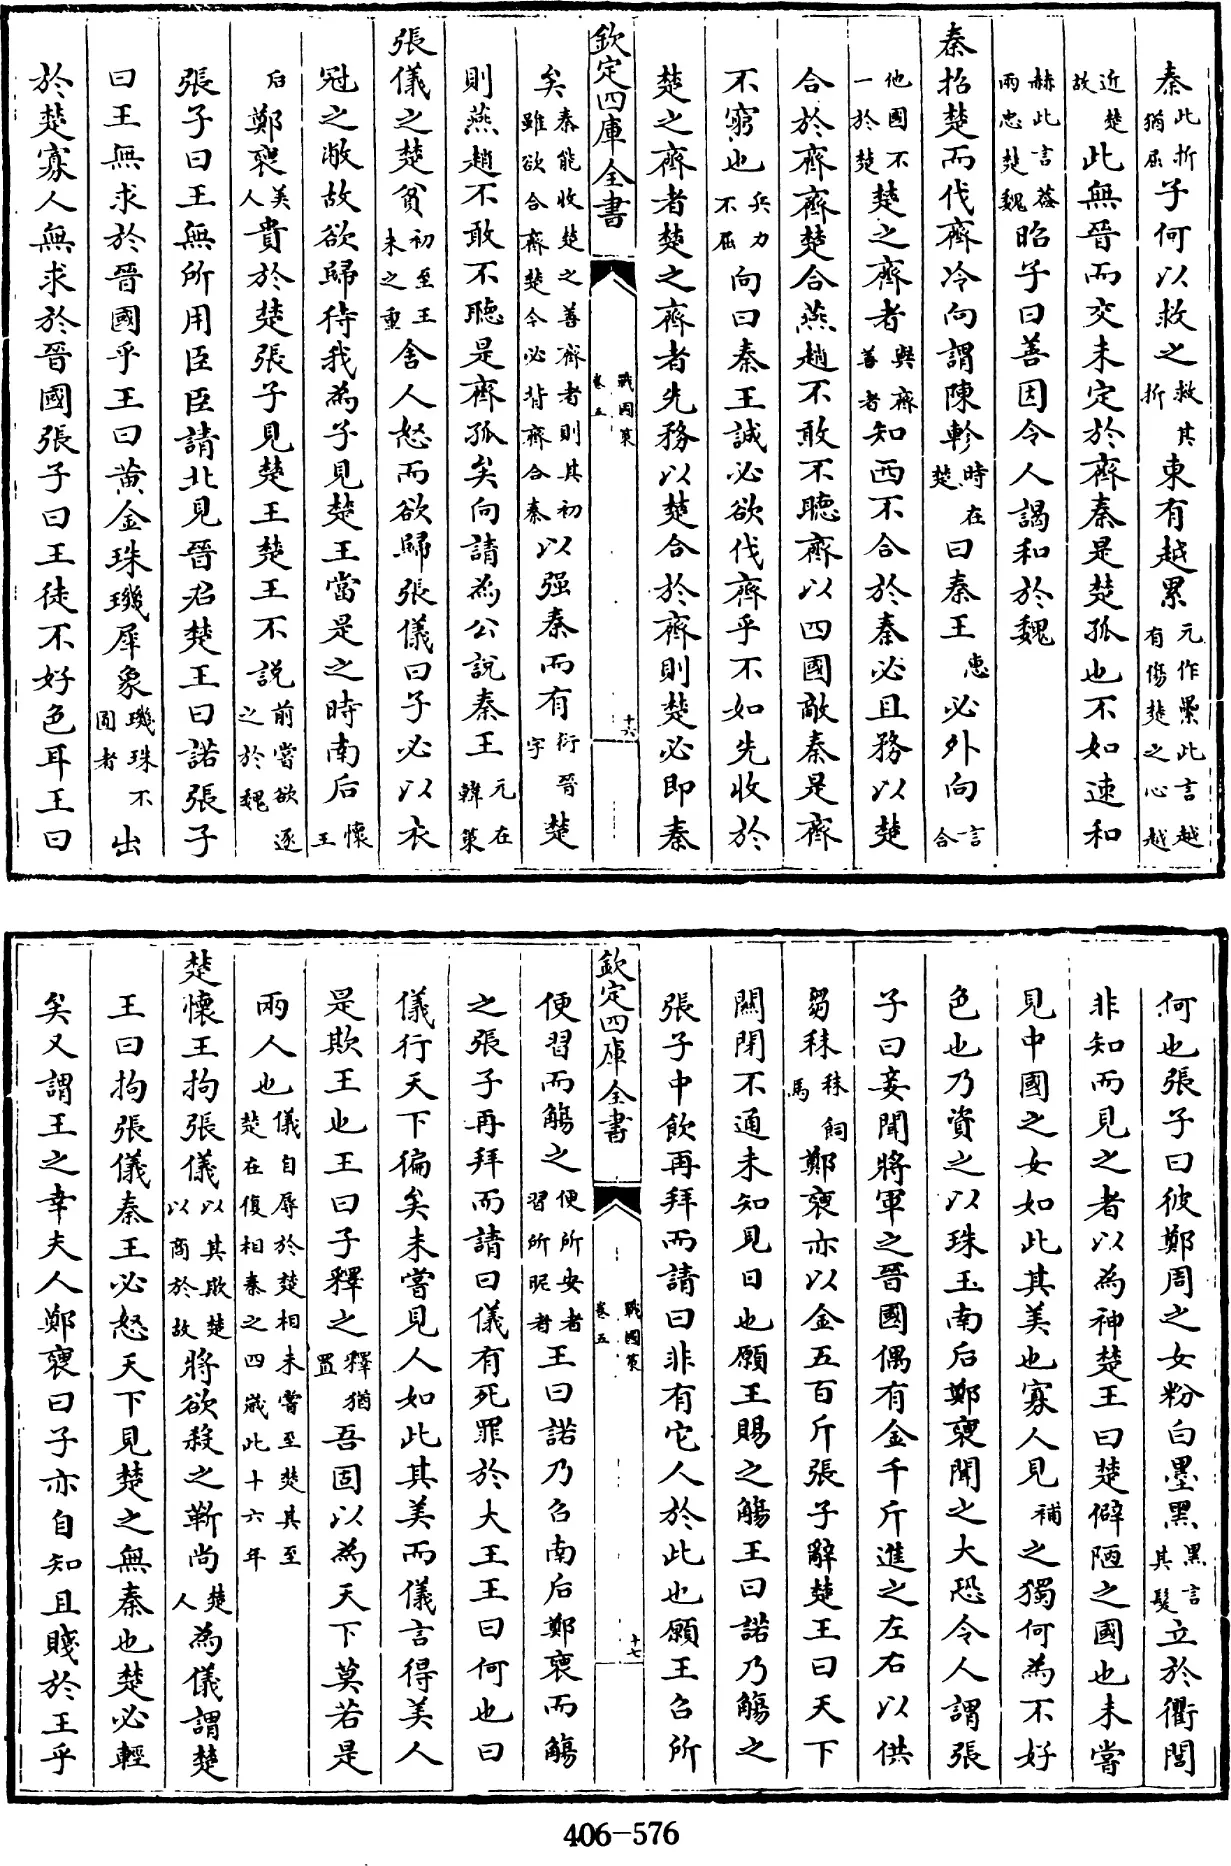 秦此折猶屈子何以救之救其折東有越累元作纍此言越有傷楚之心越
近楚故此無晉而交未定於齊秦是楚孤也不如速和
赫此言蓋兩忠楚魏昭子曰善因令人謁和於魏
秦招楚而伐齊冷向謂陳軫時在楚曰秦王惠必外向言合
他國不一於楚楚之齊者與齊善者知西不合於秦必且務以楚
合於齊齊楚合燕趙不敢不聽齊以四國敵秦是齊
不窮也兵力不屈向曰秦王誠必欲伐齊乎不如先收於
楚之齊者楚之齊者先務以楚合於齊則楚必即秦
欽定四庫全書 戰國策 卷五 十六
矣秦能收楚之善齊者則其初雖欲合齊楚今必背齊合秦以强秦而有衍字晉楚
則燕趙不敢不聽是齊孤矣向請為公說秦王元在韓策
張儀之楚貧初至王未之重舍人怒而欲歸張儀曰子必以衣
冠之敝故欲歸待我為子見楚王當是之時南后懷王
后鄭襃美人貴於楚張子見楚王楚王不說前嘗欲逐之於魏
張子曰王無所用臣臣請北見晉君楚王曰諾張子
曰王無求於晉國乎王曰黄金珠璣犀象璣珠不圓者出
於楚寡人無求於晉國張子曰王徒不好色耳王曰
何也張子曰彼鄭周之女粉白墨黑黑言其髮立於衢閭
非知而見之者以為神楚王曰楚僻陋之國也未嘗
見中國之女如此其美也寡人見補之獨何為不好
色也乃資之以珠玉南后鄭襃聞之大恐令人謂張
子曰妾聞將軍之晉國偶有金千斤進之左右以供
芻秣秣飼馬鄭襃亦以金五百斤張子辭楚王曰天下
關閉不通未知見日也願王賜之觴王曰諾乃觴之
張子中飲再拜而請曰非有它人於此也願王召所
欽定四庫全書 戰國策 卷五 十七
便習而觴之便所安者習所昵者王曰諾乃召南后鄭襃而觴
之張子再拜而請曰儀有死罪於大王王曰何也曰
儀行天下徧矣未嘗見人如此其美而儀言得美人
是欺王也王曰子釋之釋猶置吾固以為天下莫若是
兩人也儀自辱於楚相未嘗至楚其至楚在復相秦之四歲此十六年
楚懷王拘張儀以其欺楚以商於故將欲殺之靳尚楚人為儀謂楚
王曰拘張儀秦王必怒天下見楚之無秦也楚必輕
矣又謂王之幸夫人鄭襃曰子亦自知且賤於王乎
406-576